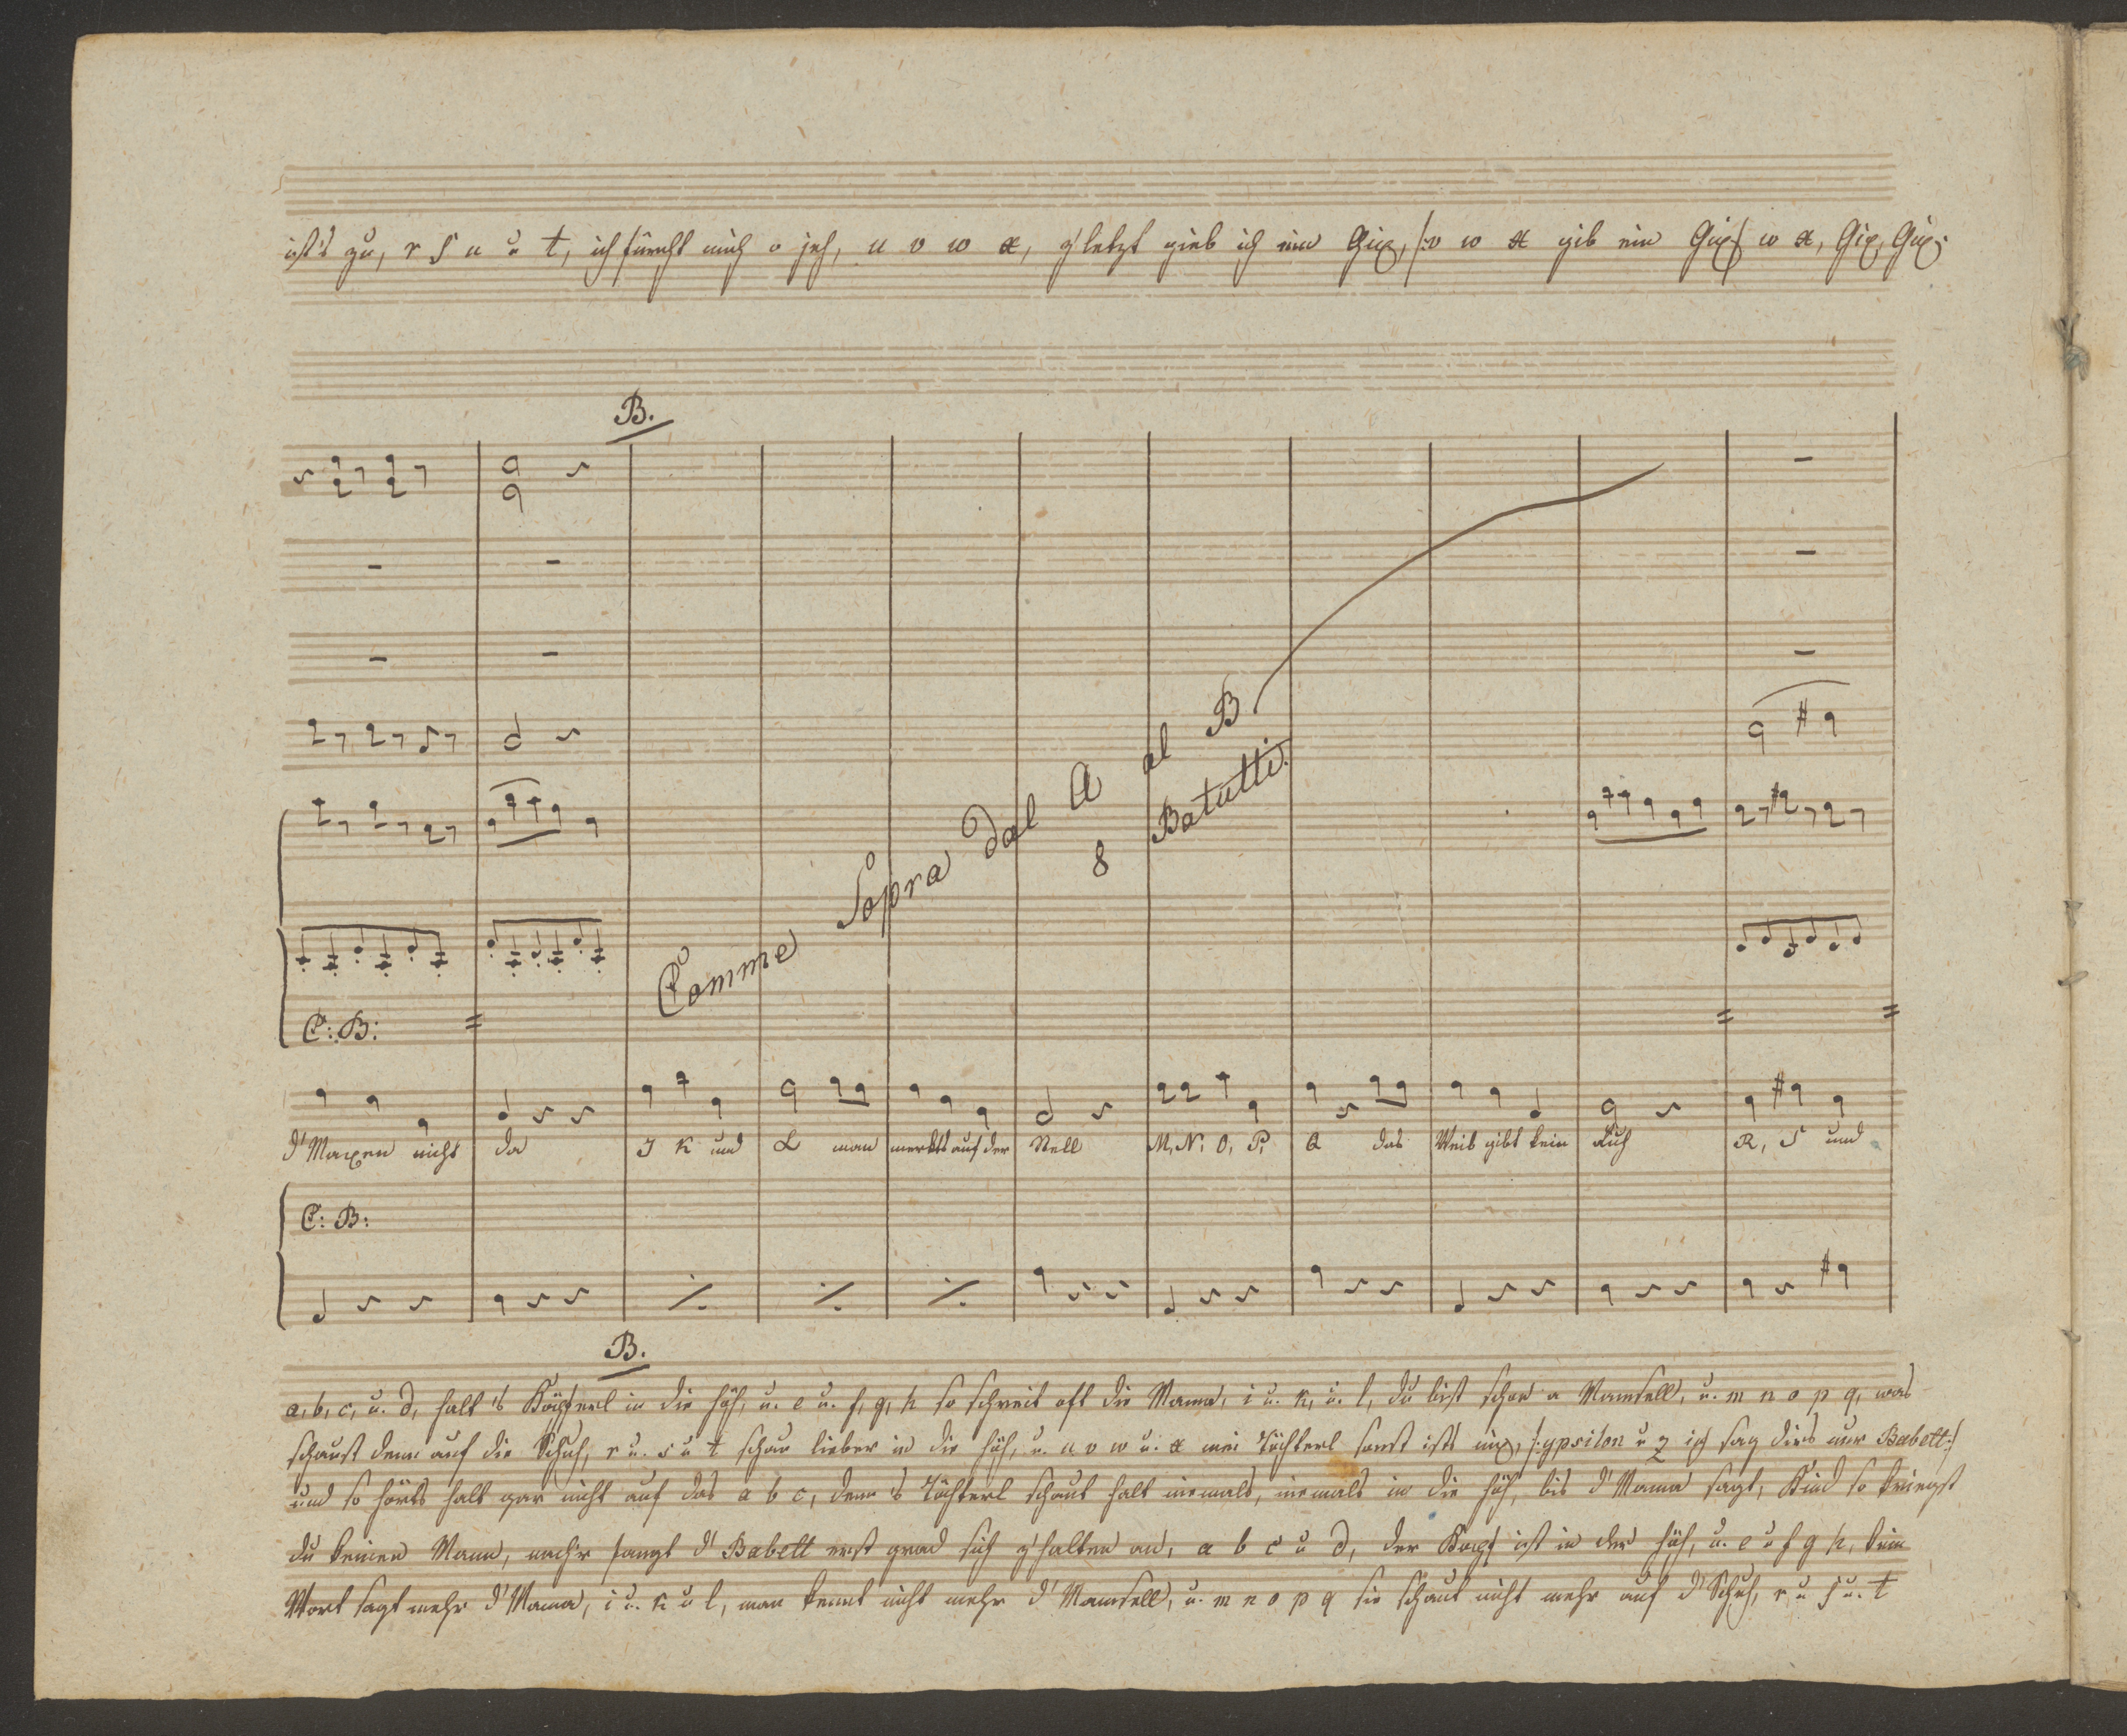 ist's zu, r s u u t, ich fürcht mich o jeh, u v w x, z'letzt gieb ich ein Gix, /: v w x gib ein Gix :/ w x, Gix, Gix:
B.
Comme Sopra Dal A al B
8 Batutti.
C: B:
d' Maxen nicht da J K und L man merkts auf der Stell M, N, O, P, Q das Weib gibt kein Ruh R, S und
C: B:
B.
a, b, c, u. d, halt 's Köpferl in die Höh, u. e u. f, g, h so schreit oft die Mama, i u. k, u. l, du bist schon a Mamsell, u. m n o p q, was
schaust denn auf die Schuh, r u. s u t schau lieber in die Höh, u. u v w u. x mei Töchterl sonst ists nix, /: ypsilon u z ich sag dirs nur Babett :/
und so hörts halt gar nicht auf das a b c, denn 's Töchterl schaut halt niemals, niemals in die Höh, bis d' Mama sagt, Kind so kriegst
du keinen Mann, nach'r fangt d' Babett erst grad sich z'halten an, a b c u d, der Kopf ist in der Höh, u. e u f g h, kein
Wort sagt mehr d' Mama, i u. k u l, man kennt nicht mehr d' Mamsell, u. m n o p q sie schaut nicht mehr auf d' Schuh, r u s u. t